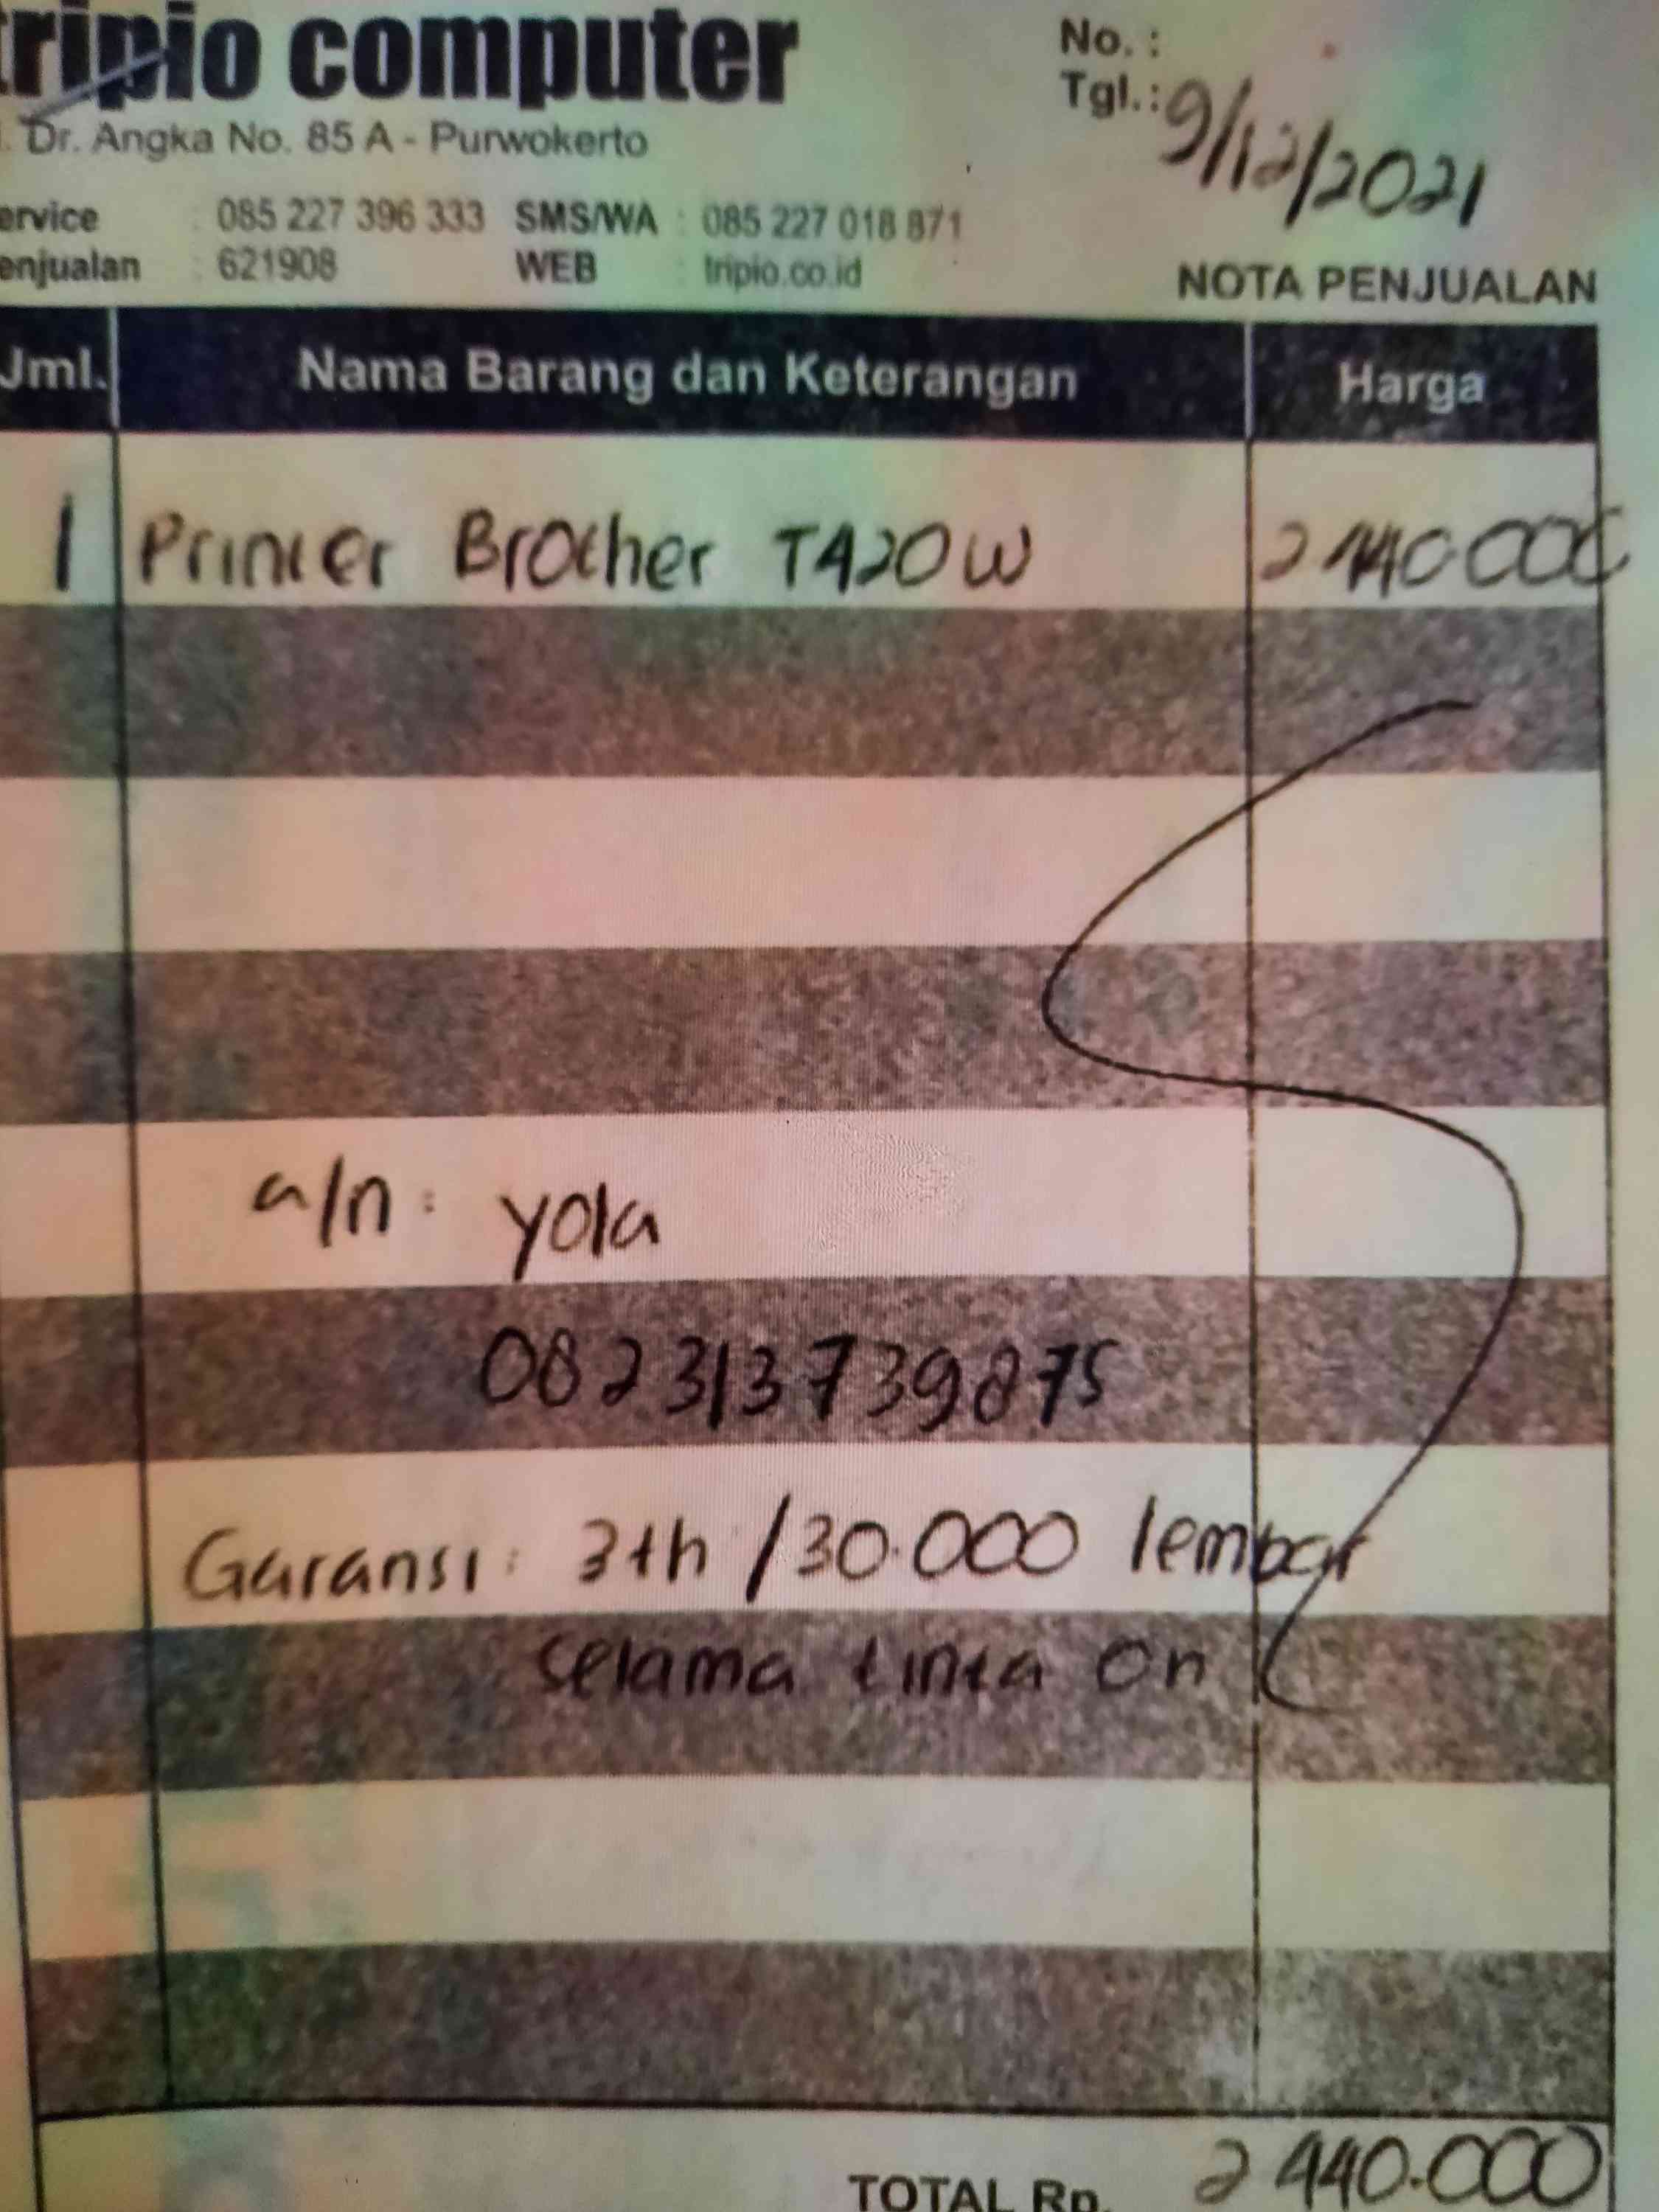 tripio computer
No. :
Tgl.: 9/12/2021
. Dr. Angka No. 85 A - Purwokerto
ervice : 085 227 396 333 SMS/WA : 085 227 018 871
enjualan : 621908 WEB : tripio.co.id
NOTA PENJUALAN
Jml. Nama Barang dan Keterangan Harga
1 Printer Brother T420W 2440.000
a/n : yola
082313739875
Garansi : 3th /30.000 lembar
selama tinta on
TOTAL Rp. 2440.000